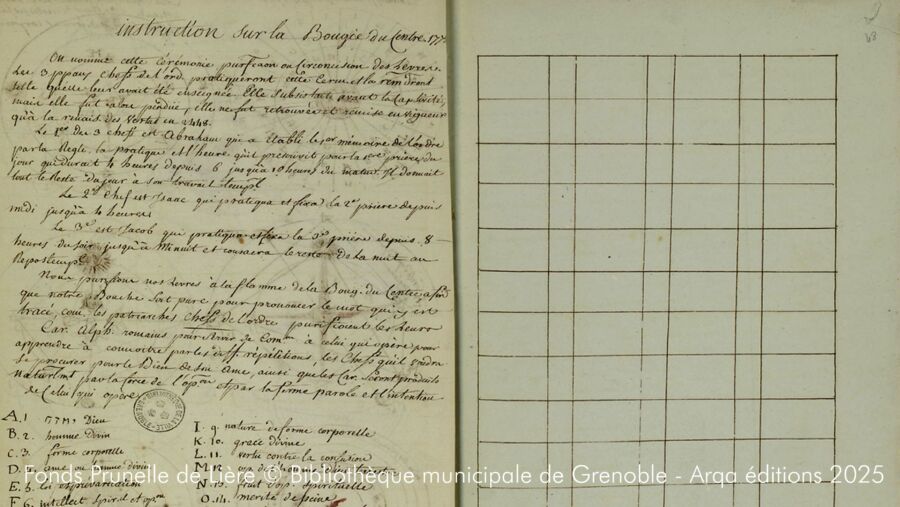 instruction sur la Bougie du Centre 177
On nomme cette cérémonie purifcaon ou Circoncision des Levres.
Les 3 ppaux chefs de l'ord. pratiquerent cette Cerem. et la rendirent
telle quelle leur avait été enseignée. Elle subsistait avant la Captivité,
mais elle fut alors perdue, elle ne fut retrouvée et remise en vigueur
qu'à la renais. des Vertus en 2448.
Le 1er des 3 chefs est Abraham qui a établi le 1er mémoire de l'ordre
par la Regle, la pratique et l'heure qu'il prescrivit pour la 1ere prière, du
jour qui durait 4 heures depuis 6 jusqu'a 10 heures du matin. Il donnait
tout le Reste du jour à son travail templ
Le 2d Chef est Isaac qui pratiqua et fixa la 2e priere depuis
midi jusqu'à 4 heures
Le 3e est Jacob qui pratiqua et fixa la 3e prière depuis 8
heures du soir jusqu'à Minuit et consacra le reste de la nuit au
Repos templ.
Nous purifions nos Levres à la flamme de la Boug. du Centre afin
que notre Bouche soit pure pour prononcer le mot qui y est
tracé, com. les patriarches chefs de l'ordre purifioient les leurs
Car. Alph. romains pour servir de Com. à celui qui opère pour
apprendre à connoitre par les diff. répétitions, les Chefs qu'il voudra
se procurer pour le Bien de son ame, ainsi que les Car. seront produits
naturlmt par la force de l'op. et par la ferme parole et l'intention
de Celui qui opère
A. 1 Dieu
B. 2. homme divin
C. 3. forme corporelle
D. ame ou homme divin
E. 5. la représentation
F. 6. intellect spirit et op.
I. 9. nature de forme corporelle
K. 10. grace divine
L. 11. vertu contre la confusion
M. 12
N. 13. fruit d'op. spirituelle
O. 14. merite de peine
68
Fonds Prunelle de Lière © Bibliothèque municipale de Grenoble - Arqa éditions 2025